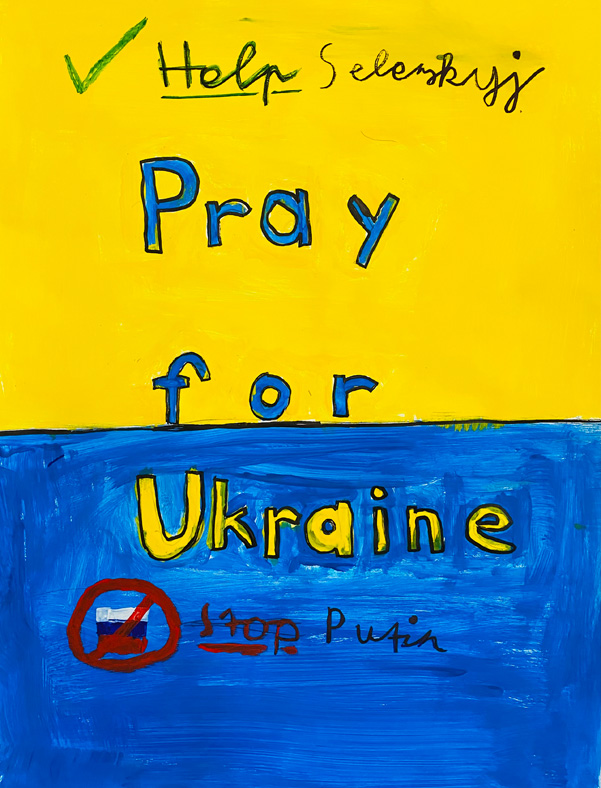 Help Selenskyj
Pray
for
Ukraine
Stop Putin